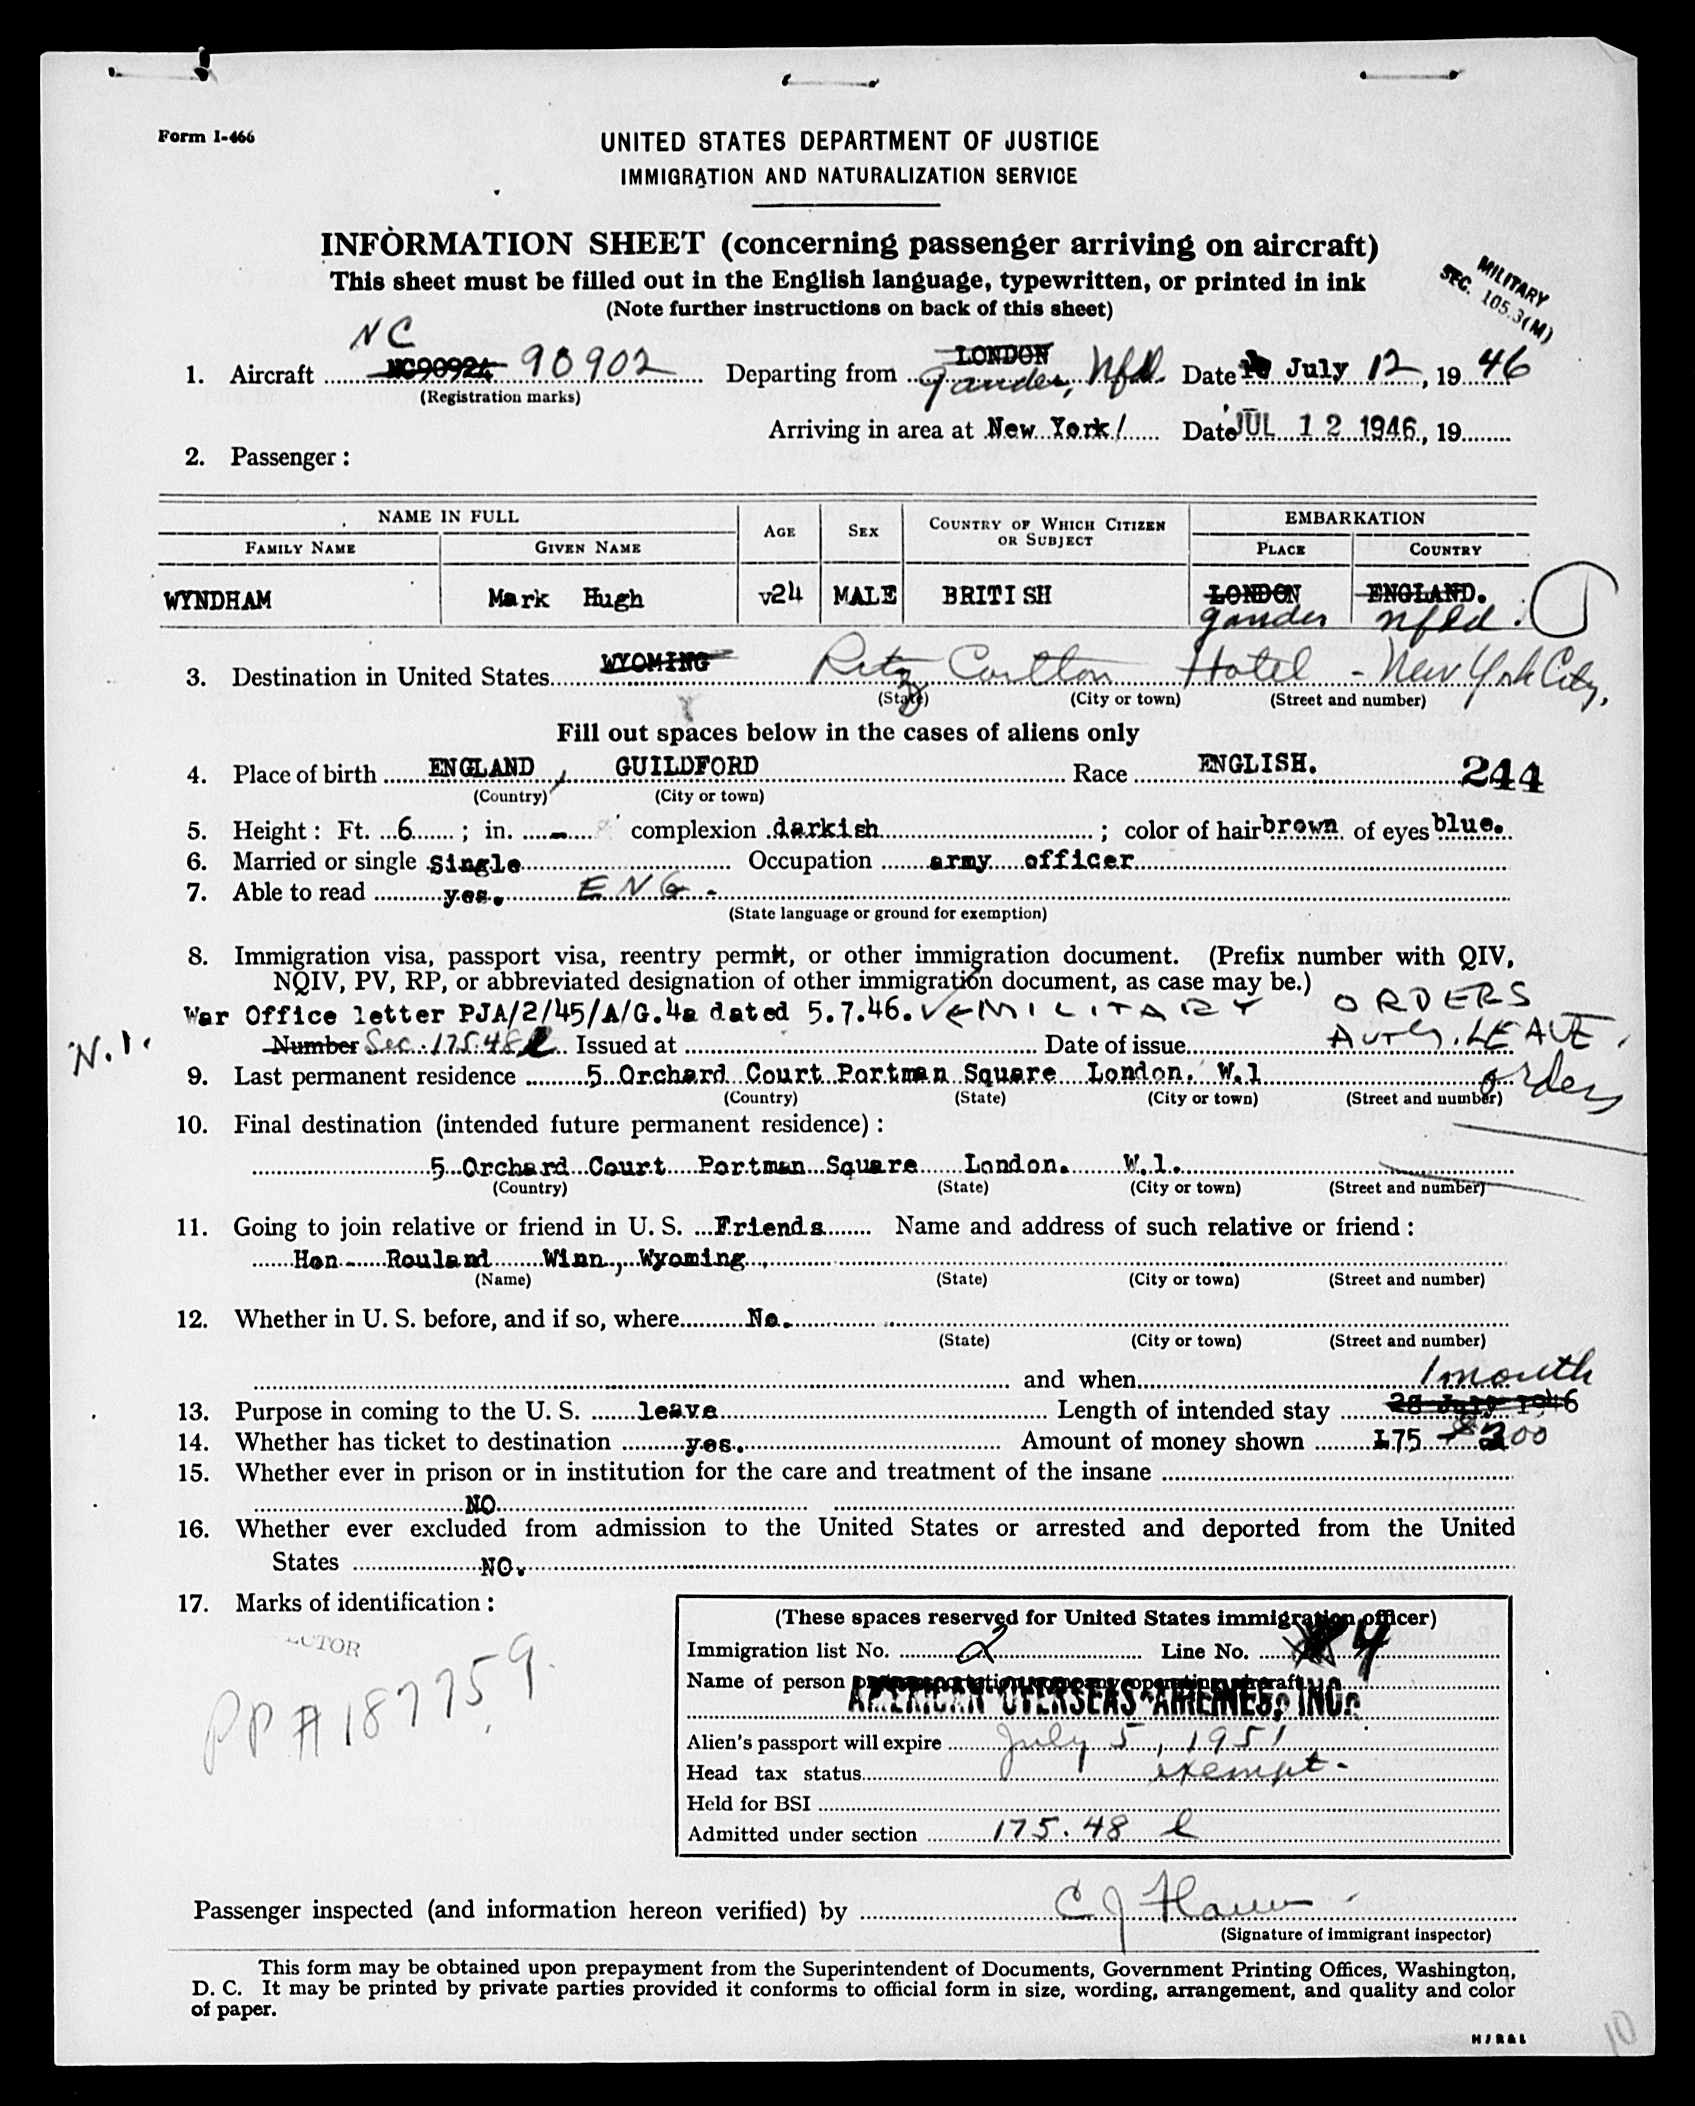 Form I-466
UNITED STATES DEPARTMENT OF JUSTICE
IMMIGRATION AND NATURALIZATION SERVICE
INFORMATION SHEET (concerning passenger arriving on aircraft)
This sheet must be filled out in the English language, typewritten, or printed in ink
(Note further instructions on back of this sheet)
MILITARY
SEC. 105.3(M)
NC
1. Aircraft NC90924 90902 Departing from LONDON Gander, Nfld. Date July 12, 1946
(Registration marks)
Arriving in area at New York/ Date JUL 12 1946, 19
2. Passenger:
NAME IN FULL AGE SEX COUNTRY OF WHICH CITIZEN OR SUBJECT EMBARKATION
FAMILY NAME GIVEN NAME PLACE COUNTRY
WYNDHAM Mark Hugh v24 MALE BRITISH LONDON ENGLAND.
gander nfld.
3. Destination in United States WYOMING Ritz Carlton Hotel - New York City,
(State) (City or town) (Street and number)
Fill out spaces below in the cases of aliens only
4. Place of birth ENGLAND, GUILDFORD Race ENGLISH. 244
(Country) (City or town)
5. Height: Ft. 6 ; in. - complexion darkish ; color of hair brown of eyes blue.
6. Married or single Single Occupation army officer
7. Able to read yes. ENG-
(State language or ground for exemption)
8. Immigration visa, passport visa, reentry permit, or other immigration document. (Prefix number with QIV,
NQIV, PV, RP, or abbreviated designation of other immigration document, as case may be.)
War Office letter PJA/2/45/A/G.4a dated 5.7.46. MILITARY ORDERS
N.I. Number Sec. 175.48 l Issued at Date of issue AUTH. LEAVE.
orders
9. Last permanent residence 5 Orchard Court Portman Square London. W.1
(Country) (State) (City or town) (Street and number)
10. Final destination (intended future permanent residence):
5 Orchard Court Portman Square London. W.1.
(Country) (State) (City or town) (Street and number)
11. Going to join relative or friend in U. S. Friends Name and address of such relative or friend:
Hon. Rouland Winn, Wyoming.
(Name) (State) (City or town) (Street and number)
12. Whether in U. S. before, and if so, where No.
(State) (City or town) (Street and number)
and when 1 month
13. Purpose in coming to the U. S. leave Length of intended stay 28 July 1946
14. Whether has ticket to destination yes. Amount of money shown £75 $200
15. Whether ever in prison or in institution for the care and treatment of the insane
NO
16. Whether ever excluded from admission to the United States or arrested and deported from the United
States NO.
17. Marks of identification:
PP#187759.
(These spaces reserved for United States immigration officer)
Immigration list No. 2 Line No. 4
Name of person or transportation company operating aircraft
AMERICAN OVERSEAS AIRLINES, INC.
Alien's passport will expire July 5, 1951
Head tax status exempt-
Held for BSI
Admitted under section 175.48 l
Passenger inspected (and information hereon verified) by C J
(Signature of immigrant inspector)
This form may be obtained upon prepayment from the Superintendent of Documents, Government Printing Offices, Washington,
D. C. It may be printed by private parties provided it conforms to official form in size, wording, arrangement, and quality and color
of paper.
10